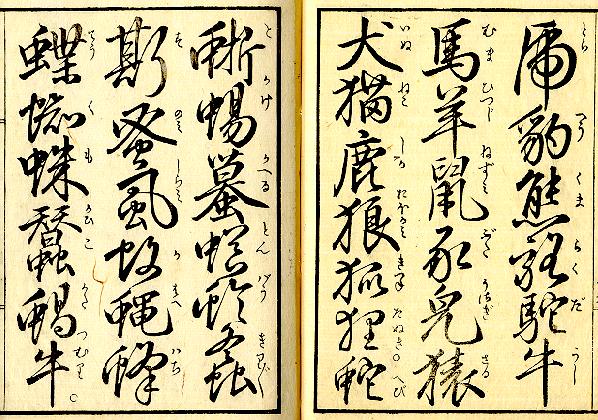 虎豹熊駱駝牛
とら へう くま らく だ うし
馬羊鼠豕兎猿
むま ひつじ ねずミ ぶた うさぎ さる
犬猫鹿狼狐狸蛇
いぬ ねこ しか おほかミ きつね たぬき へび
蜥蜴蟇蜻蛉螽
とかげ かへる とんばう きりぎり
斯蚤虱蚊蝿蜂
す のミ しらミ か はへ はち
蝶蜘蛛蠶蝸牛
てう くも かひこ かたつむり